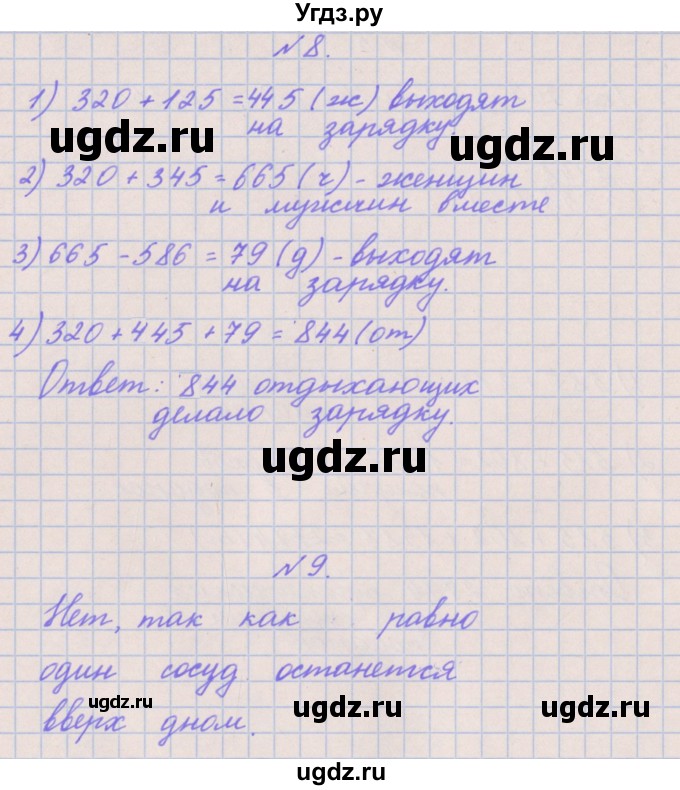 Угдз.ру
№8.
1) 320 + 125 = 445 (ж) выходят
на зарядку.
ugdz.ru ugdz.ru
2) 320 + 345 = 665 (ч) - женщин
и мужчин вместе
3) 665 - 586 = 79 (д) - выходят
на зарядку.
4) 320 + 445 + 79 = 844 (от)
Ответ: 844 отдыхающих
делало зарядку.
ugdz.ru
№9.
Нет, так как равно
один сосуд останется
ugdz.ru ugdz.ru ugdz.ru
вверх дном.
ugdz.ru